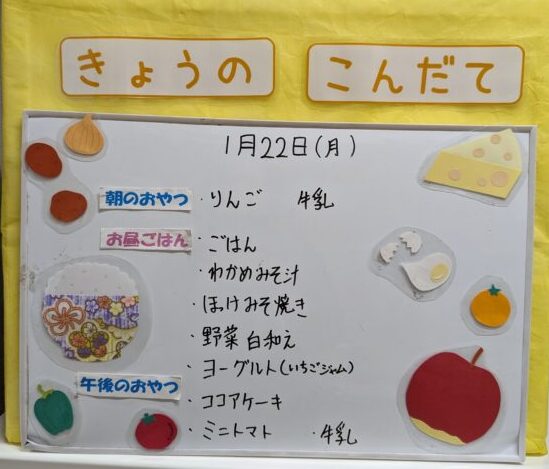 きょうの こんだて
1月22日(月)
朝のおやつ ・りんご 牛乳
お昼ごはん ・ごはん
・わかめみそ汁
・ほっけみそ焼き
・野菜白和え
・ヨーグルト(いちごジャム)
午後のおやつ ・ココアケーキ
・ミニトマト ・牛乳